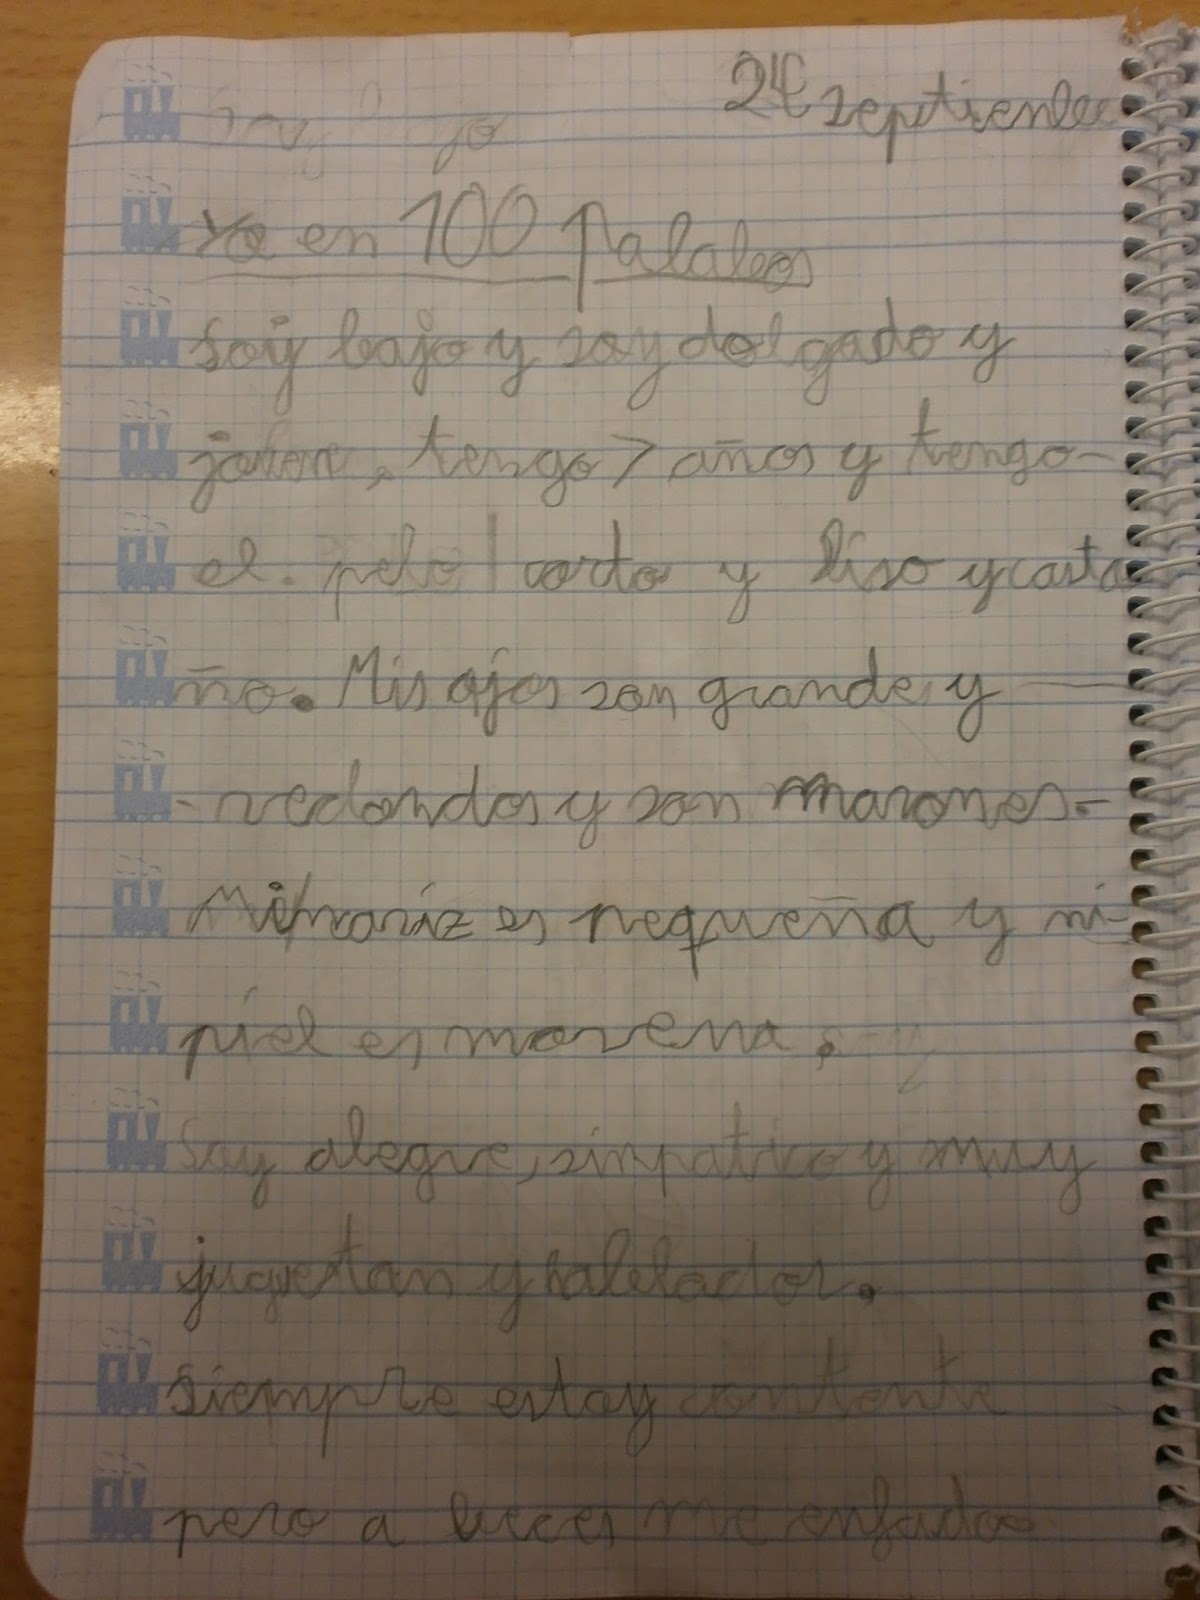 24 septiembre
Soy yo
Yo en 100 Palabras
Soy bajo y soy delgado y
joven, tengo 7 años y tengo-
el. pelo corto y liso y casta
ño. Mis ojos son grandes y
- redondos y son marones.-
Mi nariz es pequeña y mi-
piel es morena.
Soy alegre, simpatico y muy
juguetan y hablador.
Siempre estoy contento
pero a veces me enfado